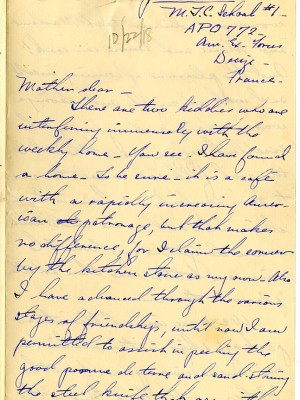 M.T.C. School #1-
APO 772-
10/22/18
Am. Ex. Forces
Decize-
France-
Mother dear-
There are two kiddies who are
interfering immensely with the
weekly home- You see- I have found
a home. To be sure- it is a café
with a rapidly increasing Amer-
ican patronage, but that makes
no difference, for I claim the corner
by the kitchen stove as my own. Also
I have advanced through the various
stages of friendship, until now I am
permitted to assist in peeling the
good pomme de terre and sand-
the steel knife